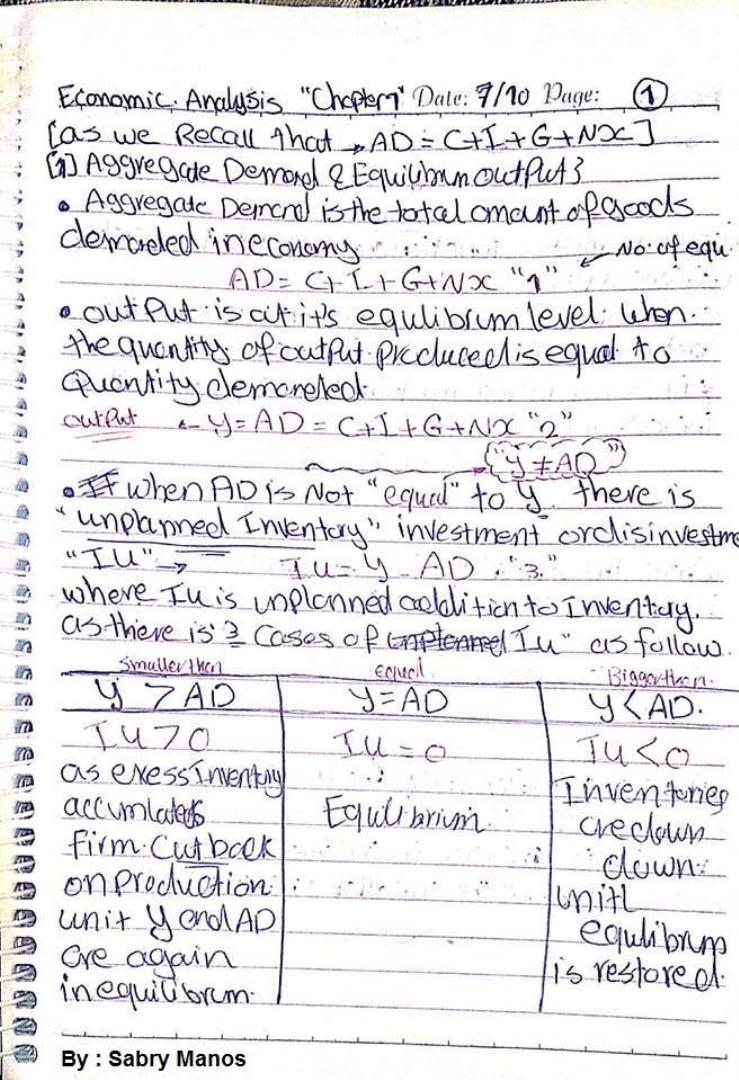 Economic Analysis "Chapter 1" Date: 7/10 Page: 1
[as we Recall that → AD = C+I+G+NX]
[1] Aggregate Demand & Equilibrum output }
• Aggregate Demand is the total amount of goods
demanded in economy
No. of equ
AD = C+I+G+NX "1"
• output is at it's equlibrium level. when.
the quantity of output produced is equal to
Quantity demanded
output ← y=AD = C+I+G+NX "2"
"y ≠ AD"
• If when AD is Not "equal" to y there is
"unplanned Inventory" investment or disinvestme
"IU" → Iu = y - AD "3"
where Iu is unplanned addition to Inventory.
as there is 3 Cases of unplanned Iu" as follow.
smaller than equal Bigger than.
y > AD y=AD y < AD.
IU > 0 Iu = 0 Iu < 0
as exess Inventory
accumlates
firm Cut back
on production
unit y and AD
are again
in equilibrum.
Equlibrium
Inventories
are down
down
unitl
equlibrum
is restored.
By : Sabry Manos